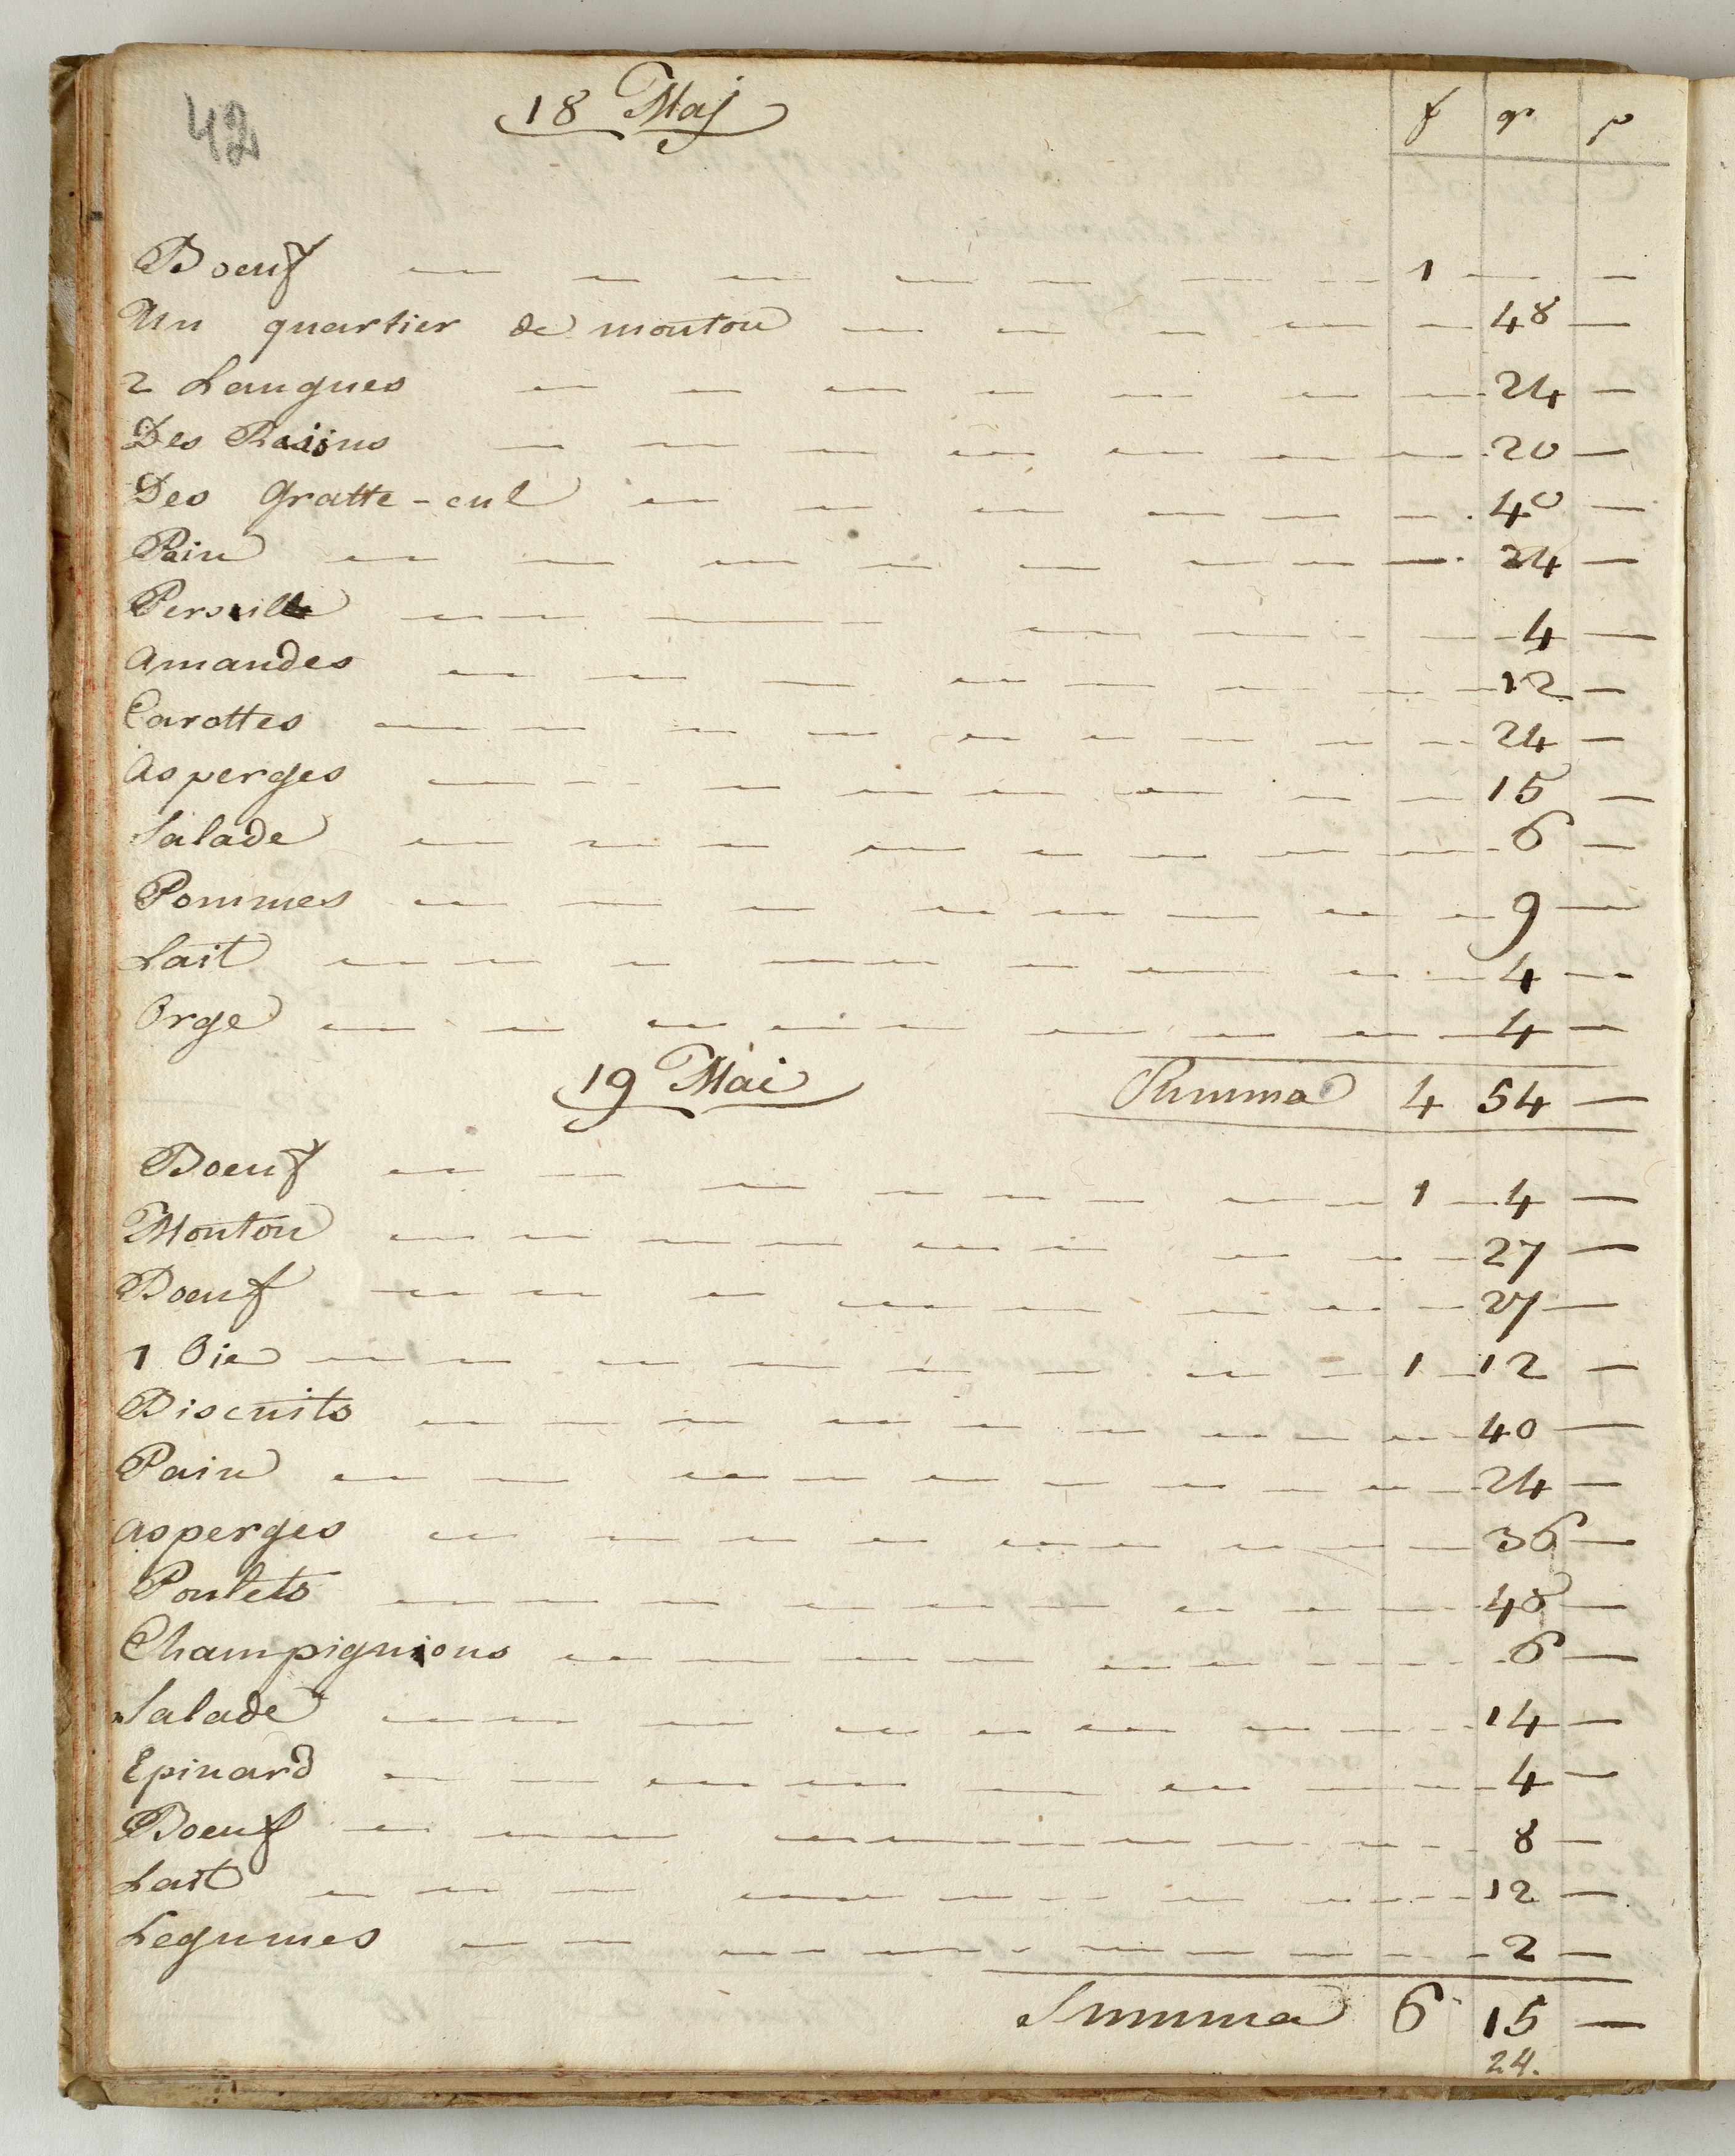 42
18 Maj
f gr p
Boeuf 1 — —
Un quartier de mouton 48 —
2 Langues 24 —
Des Rasins 20 —
Des Gratte-cul 40 —
Pain 24 —
Persille 4 —
Amandes 12 —
Carottes 24 —
Asperges 15 —
Salade 6 —
Pommes 9 —
Lait 4 —
Orge 4 —
19 Mai Summa 4 54 —
Boeuf 1 4 —
Mouton 27 —
Boeuf 27 —
1 Oie 1 12 —
Biscuits 40 —
Pain 24 —
Asperges 36 —
Poulets 48 —
Champignions 6 —
Salade 14 —
Epinard 4 —
Boeuf 8 —
Lait 12 —
Legumes 2 —
Summa 6 15 —
24.